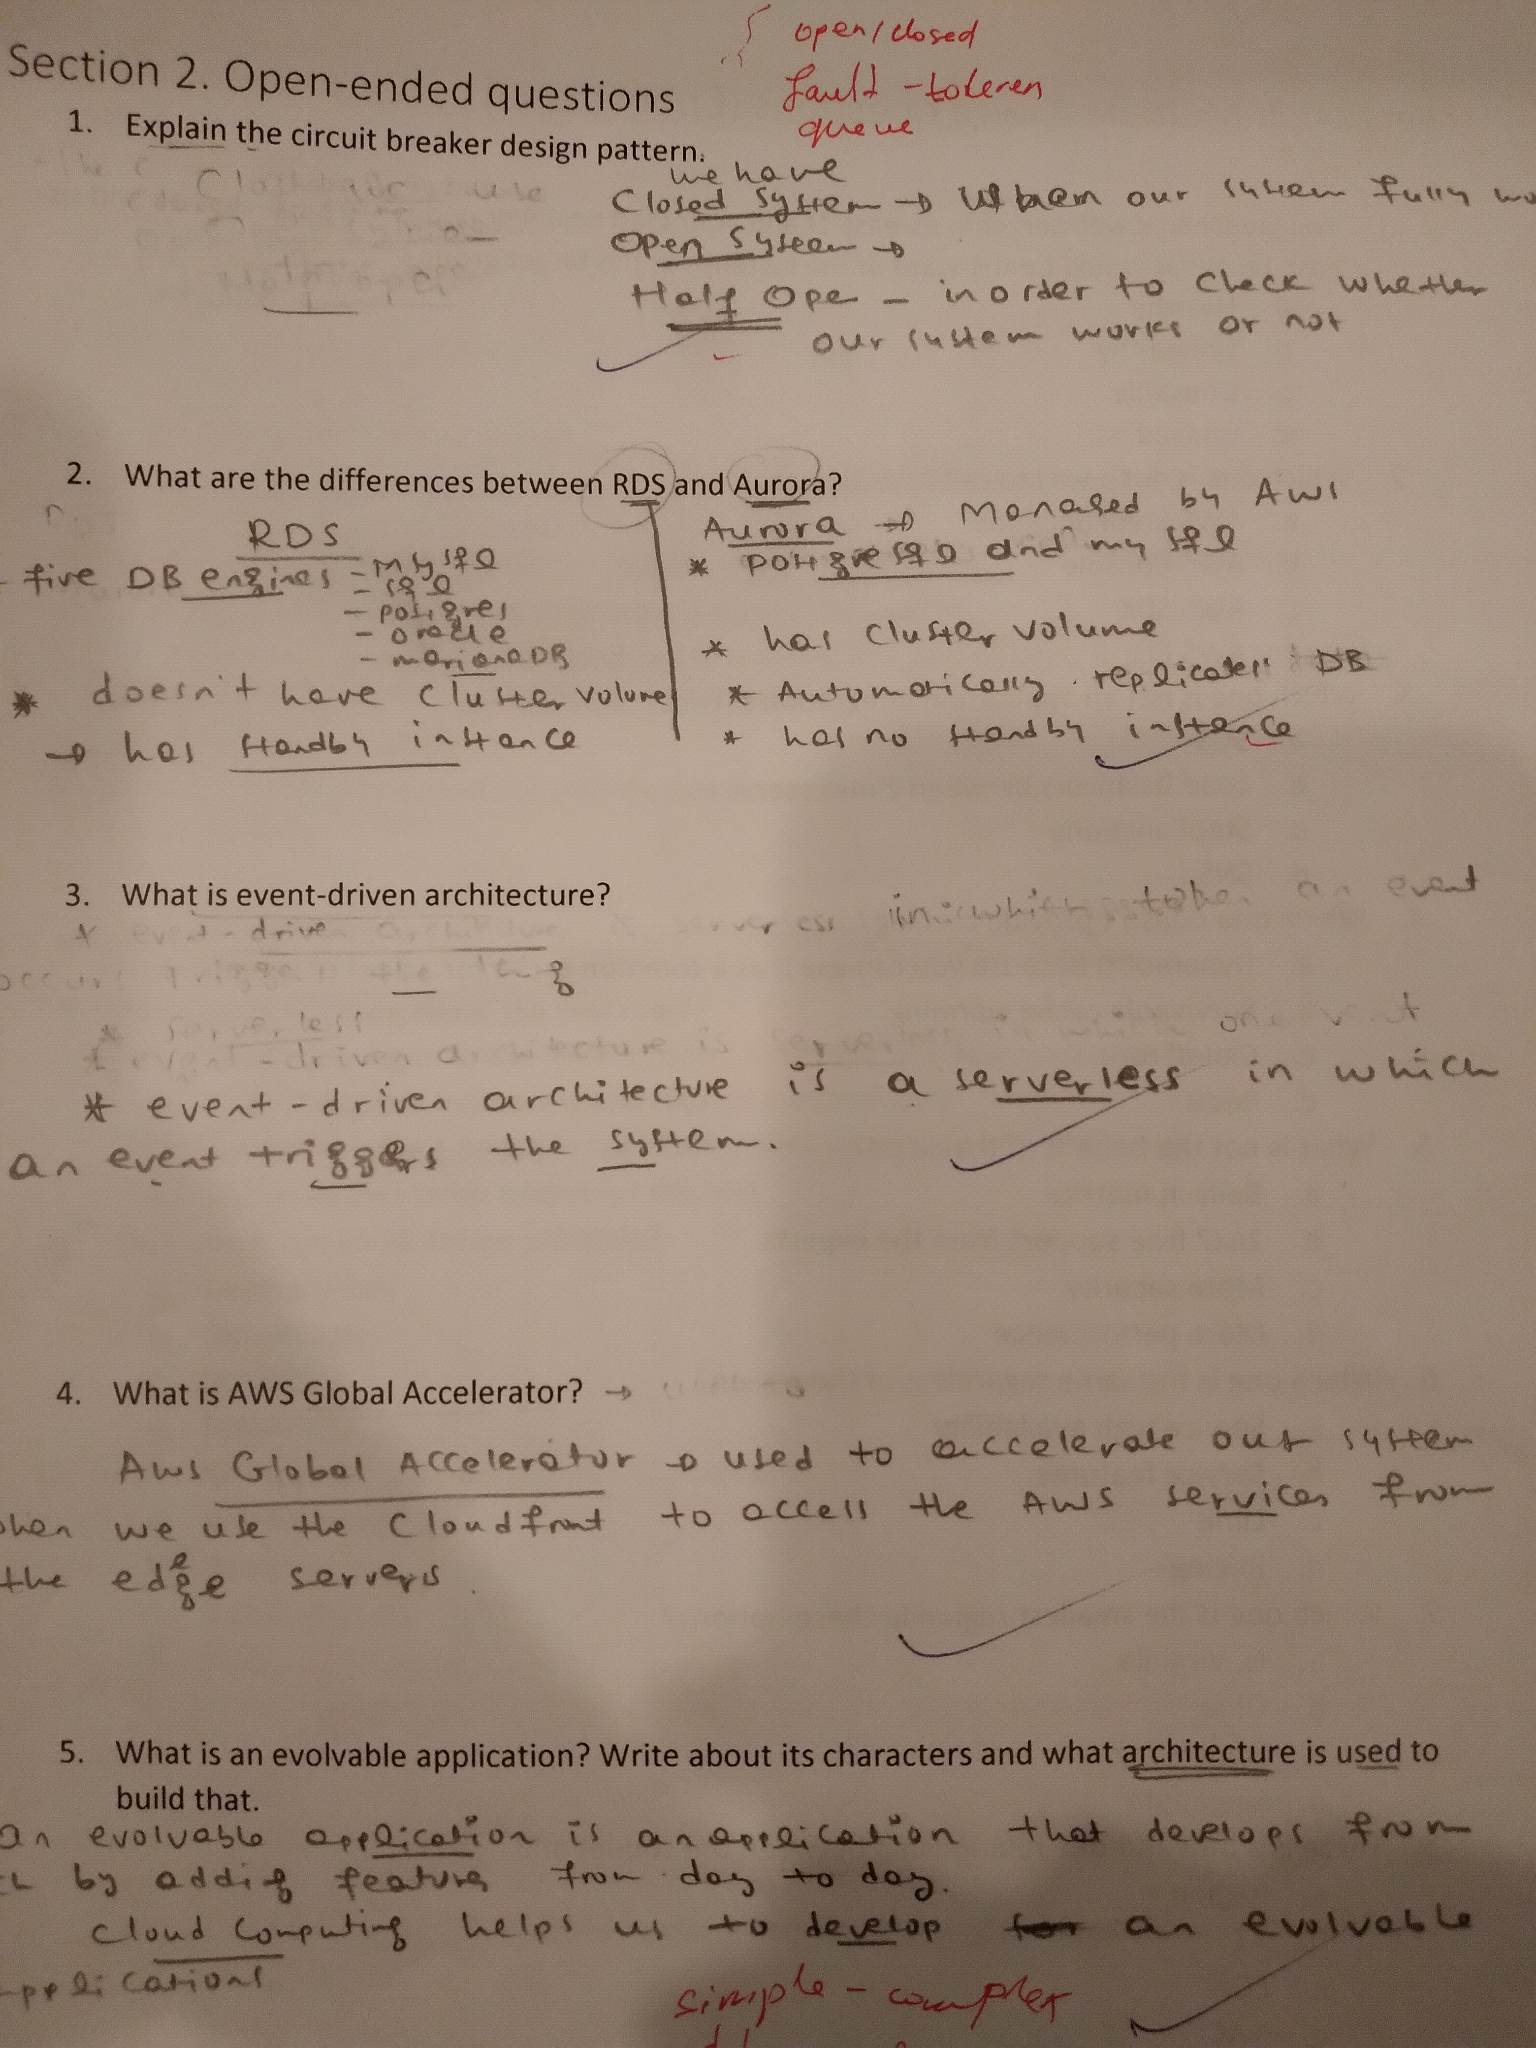 open/closed
Section 2. Open-ended questions
fault-toleren
queue
1. Explain the circuit breaker design pattern.
we have
Closed System → When our system fully
Open System →
Half Ope - in order to check whether
our system works or not
2. What are the differences between RDS and Aurora?
RDS
five DB engines - MySQL
- SQL
- postgres
- oracle
- marianaDB
* doesn't have cluster volume
→ has standby instance
Aurora → Managed by AWS
* postgreSQL and mySQL
* has cluster volume
* Automatically replicates DB
* has no standby instance
3. What is event-driven architecture?
* event-driven architecture is a serverless in which
an event triggers the system.
4. What is AWS Global Accelerator? →
Aws Global Accelerator → used to accelerate our system
when we use the Cloudfront to access the AWS services from
the edge servers.
5. What is an evolvable application? Write about its characters and what architecture is used to
build that.
an evolvable application is an application that develops from
by addig features from day to day.
Cloud Computing helps us to develop an evolvable
applications
simple - complex